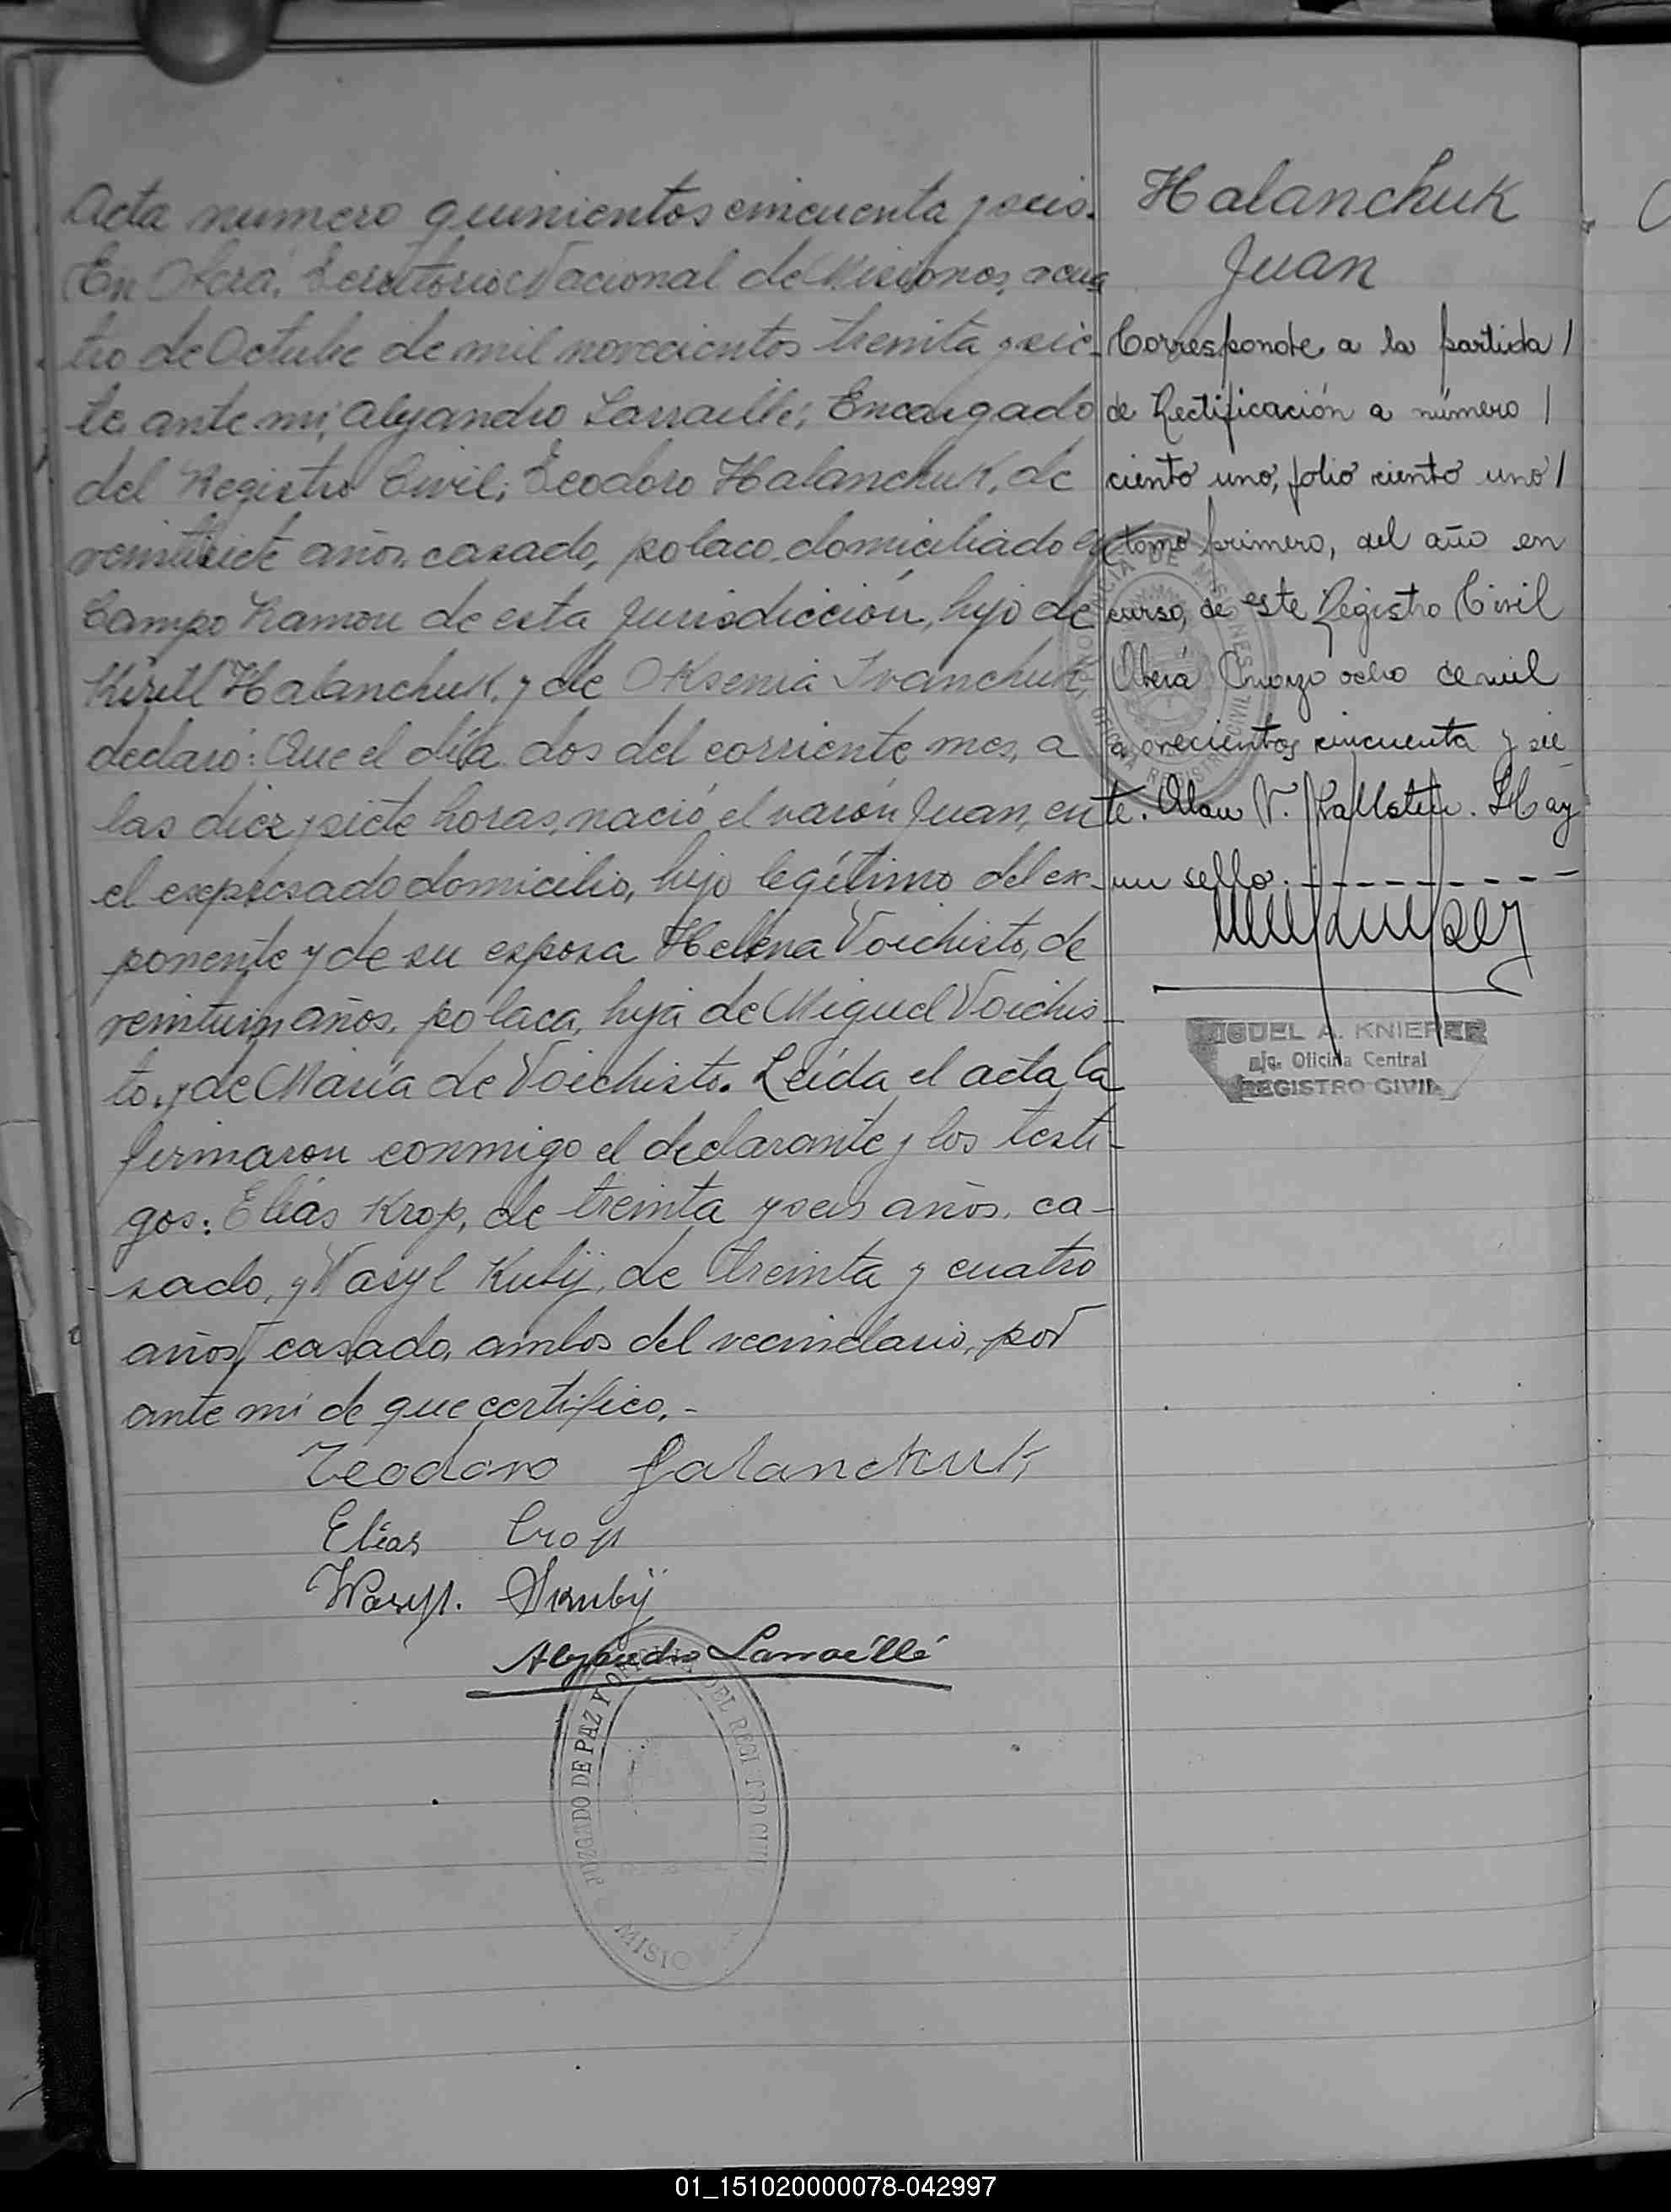 Acta numero quinientos cincuenta y seis.
En Oberá, Territorio Nacional de Misiones, a cua
tro de Octubre de mil novecientos treinta y sie-
te, ante mi, Alejandro Larraillé, Encargado
del Registro Civil; Teodoro Halanchuk, de
veintisiete años, casado, polaco, domiciliado en
Campo Ramon de esta Jurisdicción, hijo de
Kirill Halanchuk, y de Oksenia Ivanchuk
declaró: Que el día dos del corriente mes, a
las diez y siete horas, nació el varón Juan, en
el expresado domicilio, hijo legítimo del ex-
ponente y de su esposa Helena Voichisto, de
veintiun años, polaca, hija de Miguel Voichis-
to, y de María de Voichisto. Leída el acta, la
firmaron conmigo el declarante y los testi-
gos: Elías Krop, de treinta y seis años, ca-
sado, y Vasyl Kubij, de treinta y cuatro
años, casado, ambos del vecindario, por
ante mí de que certifico.-
Teodoro Galanckuk
Elias Crop
Wasyl. Skubij
Alejandro Larraillé
JUZGADO DE PAZ Y OFICINA DEL REGISTRO CIVIL
MISIO
Halanchuk
Juan
Corresponde a la partida /
de Rectificación a número /
ciento uno, folio ciento uno /
tomo primero, del año en
curso, de este Registro Civil
Oberá Marzo ocho de mil
novecientos cincuenta y sie-
te. Hay
un sello.---------
PROVINCIA DE MISIONES
REGISTRO CIVIL
MIGUEL A. KNIEPER
a/c. Oficina Central
REGISTRO CIVIL
01_151020000078-042997